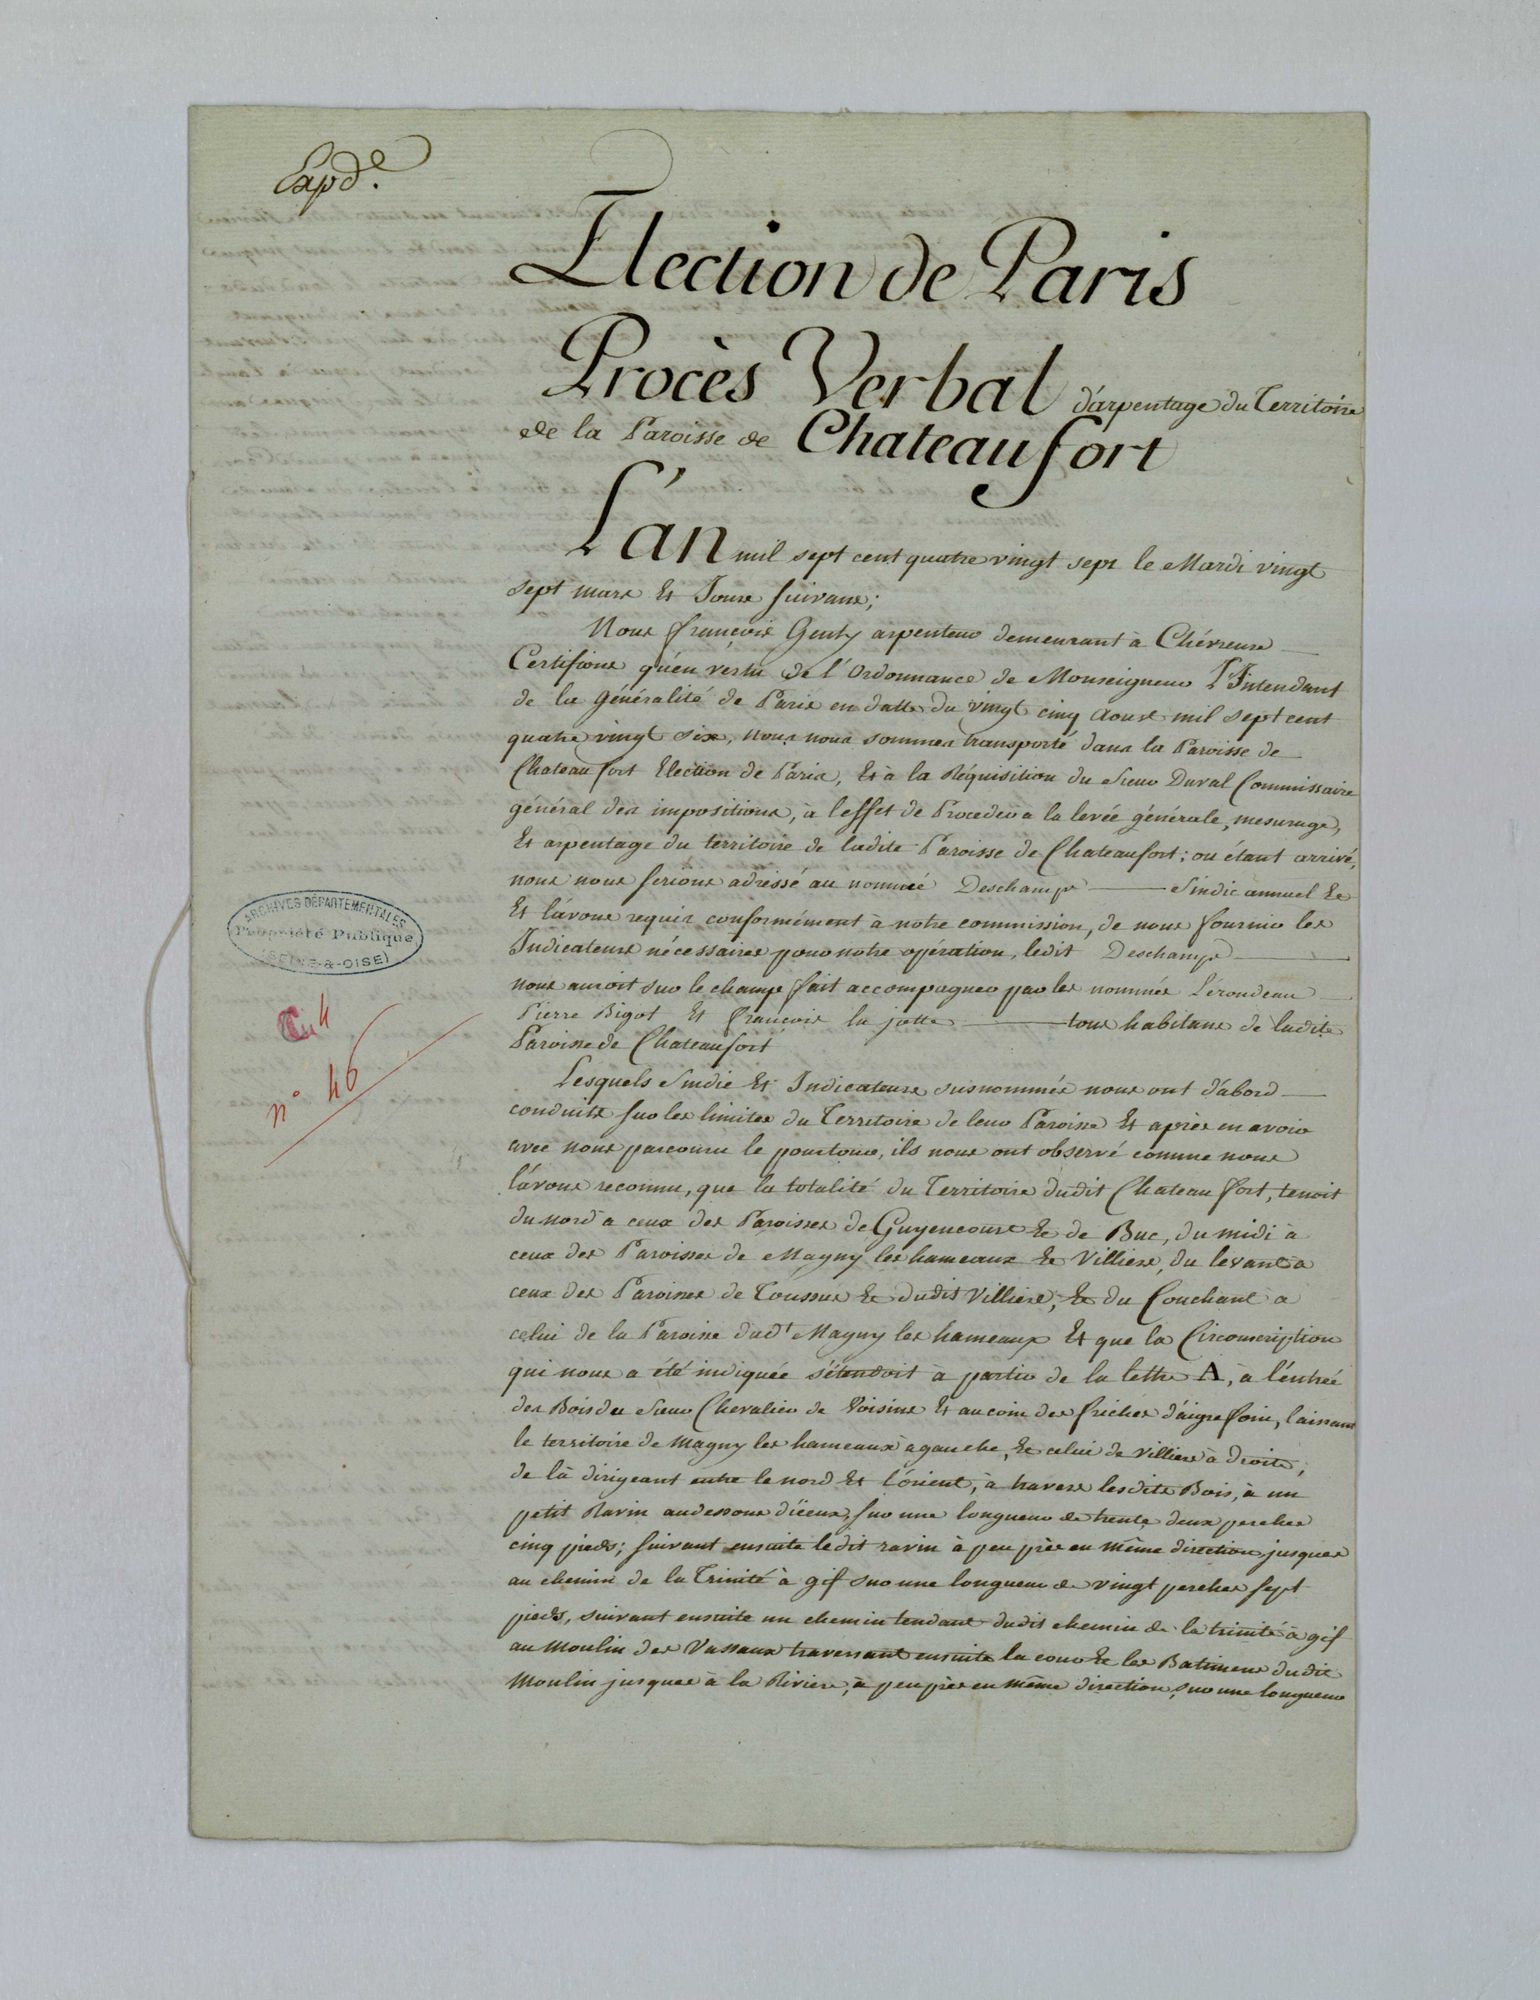 Expd.e
Election de Paris
Procès Verbal d'arpentage du Territoire
de la Paroisse de Chateaufort
L'an mil sept cent quatre vingt sept le Mardi vingt
sept mars Et Jours suivans;
Nous françois Genty arpenteur demeurant à Chévreuse
Certifions qu'en vertu de l'Ordonnance de Monseigneur L'Intendant
de la Généralité de Paris en datte du vingt cinq Aoust mil sept cent
quatre vingt six, nous nous sommes transporté dans la Paroisse de
Chateaufort Election de Paris, Et à la Réquisition du Sieur Duval Commissaire
général des impositions, à l'effet de Proceder a la levée générale, mesurage,
Et arpentage du territoire de ladite Paroisse de Chateaufort; ou étant arrivé,
nous nous serions adressé au nommé Deschamps Sindic annuel Ee
Et l'avons requis conformément à notre commission, de nous fournir les
Indicateurs nécessaires pour notre opération, ledit Deschamps
nous auroit sur le champs fait accompagner par les nommés Lérondeau
Pierre Bigot Et françois la jotte tous habitans de ladite
Paroisse de Chateaufort
ARCHIVES DÉPARTEMENTALES
Propriété Publique
(SEINE-&-OISE)
n° 46
Lesquels Sindic Et Indicateurs susnommés nous ont d'abord
conduits sur les limites du Territoire de leur Paroisse Et après en avoir
avec nous parcouru le pourtour, ils nous ont observé comme nous
l'avons reconnu, que la totalité du Territoire dudit Chateaufort, tenoit
du nord à ceux des Paroisses de Guyencourt Ee de Buc, du midi à
ceux des Paroisses de Magny les hameaux Ee Villiers, du levant à
ceux des Paroisses de Toussus Ee dudit Villiers, Ee du Couchant à
celui de la Paroisse dud.t Magny les hameaux Et que la Circonscription
qui nous a été indiquée s'étendoit à partir de la lettre A, à l'entrée
des Bois du Sieur Chevalier de Voisins Et au coin des friches d'aigrefoin, laissant
le territoire de Magny les hameaux à gauche, Ee celui de Villiers à droite;
de là dirigeant entre le nord Et l'orient, à travers lesdits Bois, à un
petit Ravin audessous d'iceux, sur une longueur de trente deux perches
cinq pieds; suivant ensuite ledit ravin à peu près en même direction jusques
au chemin de la Trinité à gif sur une longueur de vingt perches sept
pieds, suivant ensuite un chemin tendant dudit chemin de la trinité à gif
au Moulin des Vassaux traversant ensuite la cour Ee les Batimens dudit
Moulin jusques à la Riviere, à peu près en même direction, sur une longueur